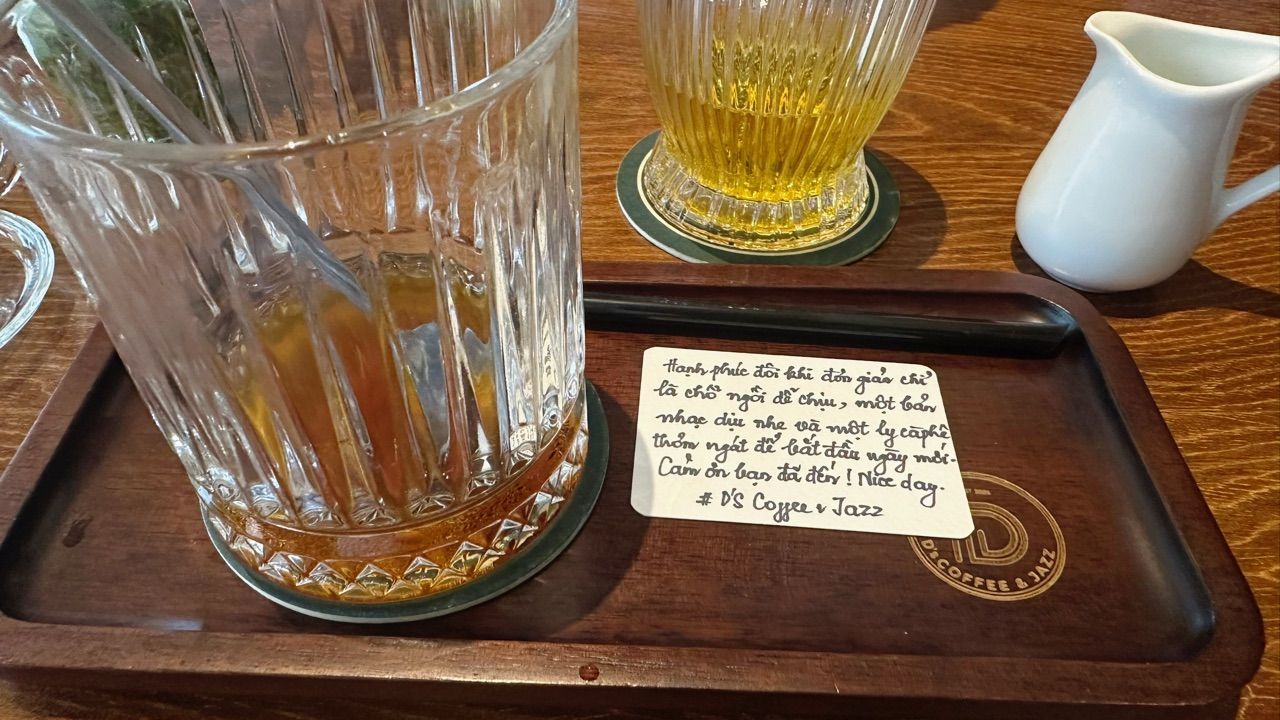 Hạnh phúc đôi khi đơn giản chỉ
là chỗ ngồi dễ chịu, một bản
nhạc dịu nhẹ và một ly càphê
thơm ngát để bắt đầu ngày mới.
Cảm ơn bạn đã đến! Nice day.
# D'S Coffee & Jazz
D
D'S COFFEE & JAZZ